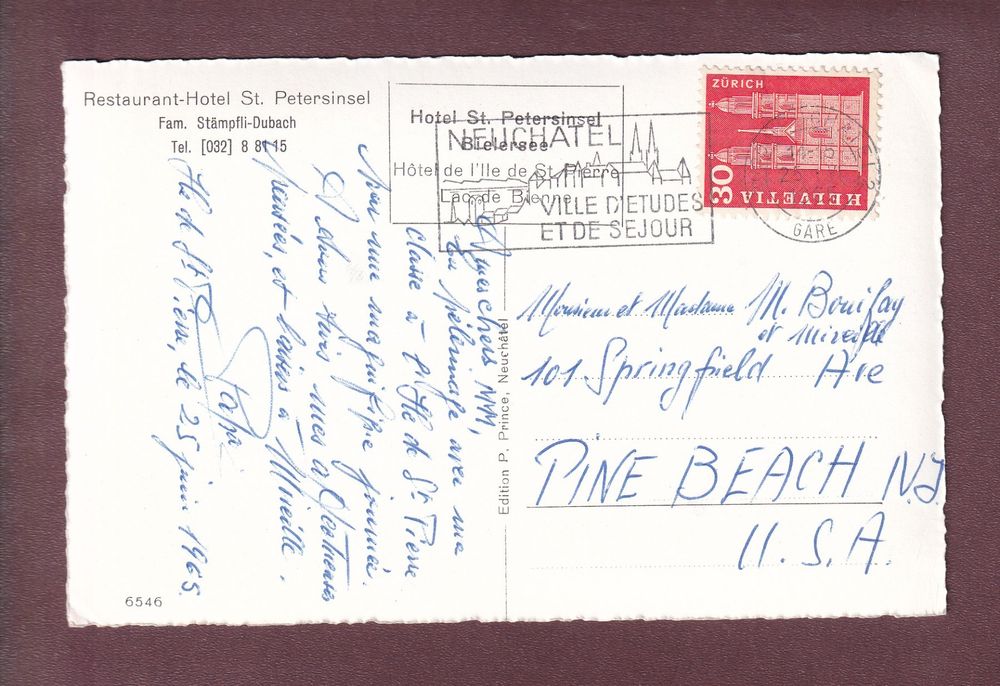 Restaurant-Hotel St. Petersinsel
Fam. Stämpfli-Dubach
Tel. [032] 8 81 15
Hotel St. Petersinsel
Bielersee
Hôtel de l'Ile de St. Pierre
Lac de Bienne
NEUCHATEL
VILLE D'ETUDES
ET DE SEJOUR
ZÜRICH
30
HELVETIA
GARE
Mes chers MM,
En pèlerinage avec ma
classe à l'Ile de St Pierre
par une magnifique journée.
A vous trois mes affectueuses
pensées, et baisers à Mireille.
Papa
Ile de St Pierre, le 25 juin 1965.
Edition P. Prince, Neuchâtel
Monsieur et Madame M. Bonifay
et Mireille
101 Springfield Ave
PINE BEACH N.J
U.S.A.
6546